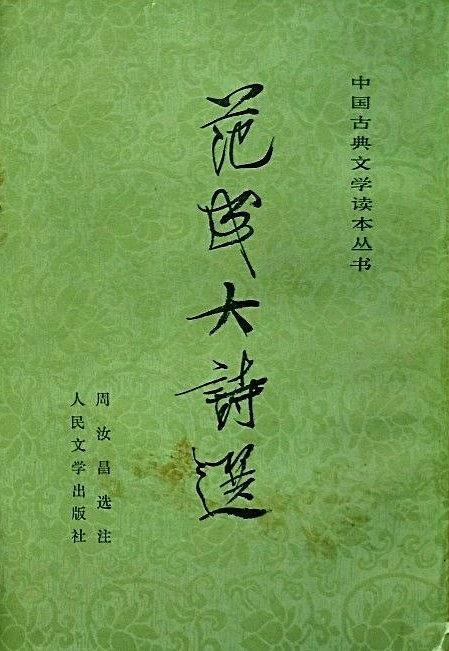 中国古典文学读本丛书
范成大詩選
周汝昌选注
人民文学出版社